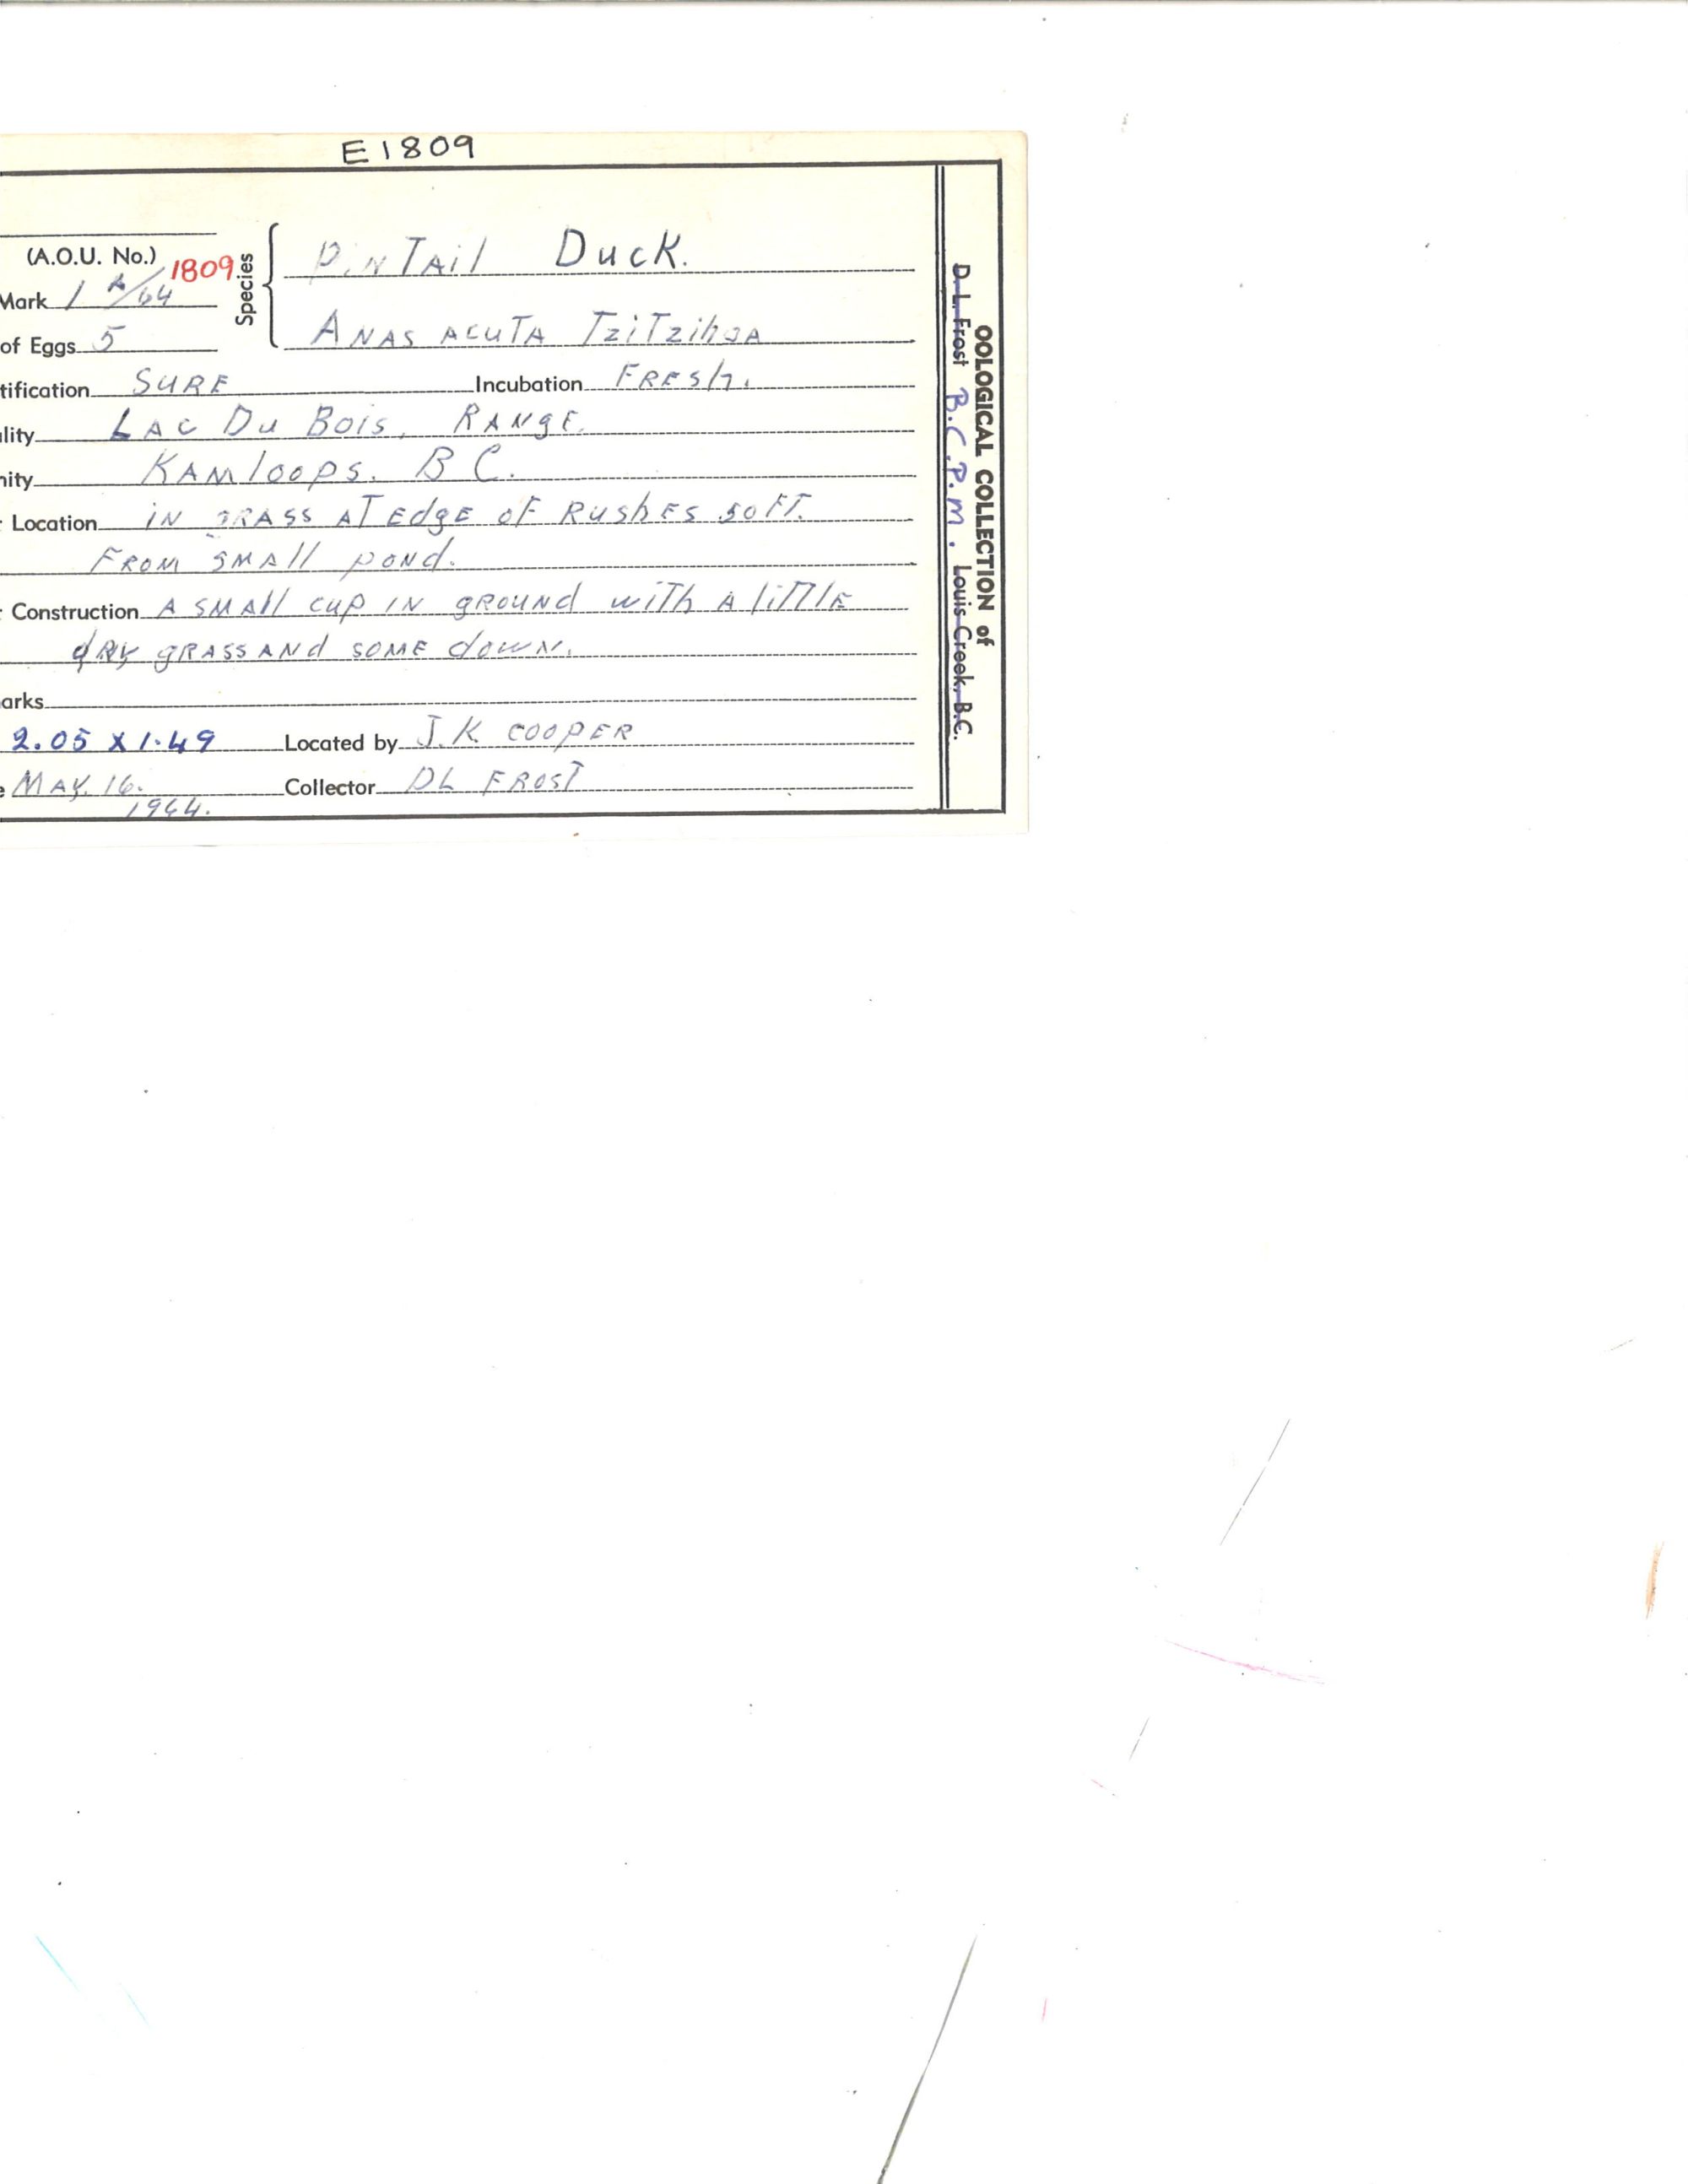 E1809
(A.O.U. No.) 1809
Species PinTail Duck.
Mark 1 A/64
ANAS ACUTA TziTzihoA
of Eggs 5
tification SURE Incubation FRESh.
lity LAC Du Bois. RANgE.
nity KAMloops. B C.
Location iN gRASS AT EdgE oF RushEs 50 FT.
FROM SMAll pond.
Construction A SMAll cup IN gROUNd wiTh A liTTlE
dRy gRASS ANd SOME dowN.
arks
2.05 X 1.49 Located by J.K. COOPER
e MAY. 16. Collector DL FROST
1964.
OOLOGICAL COLLECTION of
D. L. Frost B.C.P.M. Louis Creek, B.C.